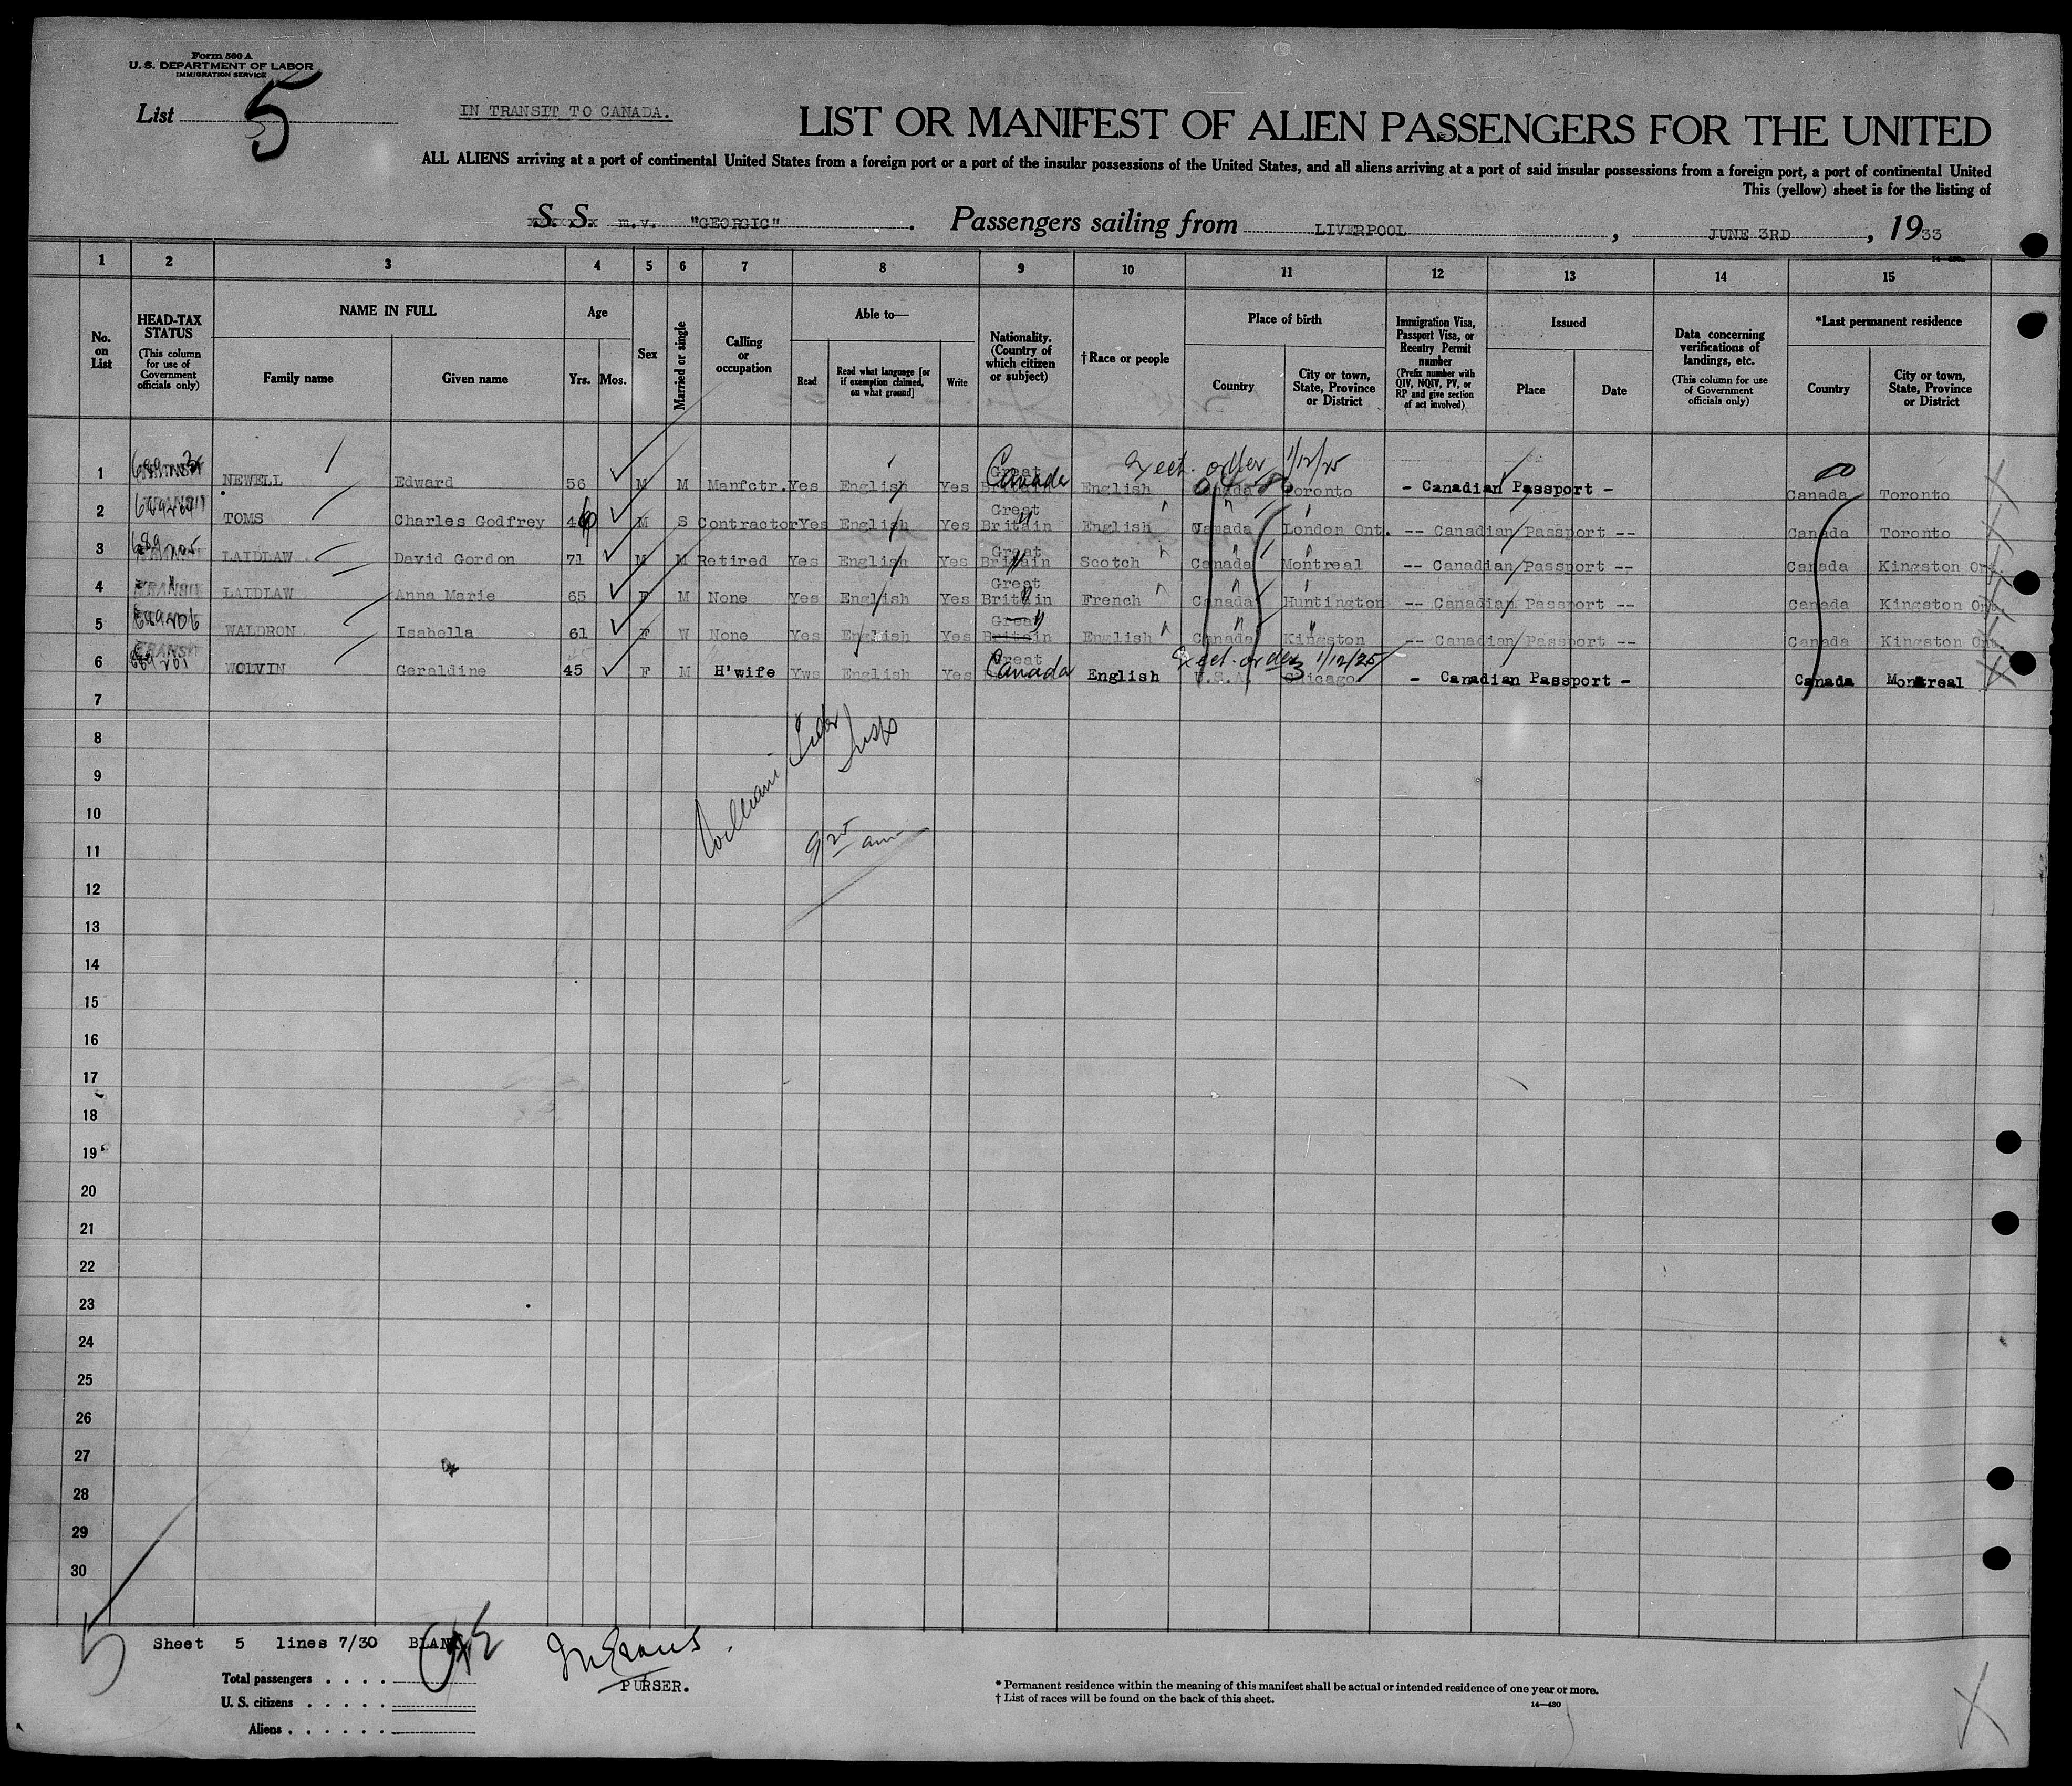 Form 500 A
U. S. DEPARTMENT OF LABOR
IMMIGRATION SERVICE
List 5
IN TRANSIT TO CANADA.
LIST OR MANIFEST OF ALIEN PASSENGERS FOR THE UNITED
ALL ALIENS arriving at a port of continental United States from a foreign port or a port of the insular possessions of the United States, and all aliens arriving at a port of said insular possessions from a foreign port, a port of continental United
This (yellow) sheet is for the listing of
S. S. m.v. "GEORGIC" . Passengers sailing from LIVERPOOL , JUNE 3RD , 1933
1 2 3 4 5 6 7 8 9 10 11 12 13 14 15
No. on List
HEAD-TAX STATUS
(This column for use of Government officials only)
NAME IN FULL
Family name
Given name
Age
Yrs. Mos.
Sex
Married or single
Calling or occupation
Able to—
Read
Read what language [or if exemption claimed, on what ground]
Write
Nationality. (Country of which citizen or subject)
†Race or people
Place of birth
Country
City or town, State, Province or District
Immigration Visa, Passport Visa, or Reentry Permit number
(Prefix number with QIV, NQIV, PV, or RP and give section of act involved)
Issued
Place
Date
Data concerning verifications of landings, etc.
(This column for use of Government officials only)
*Last permanent residence
Country
City or town, State, Province or District
Exect. order 1/12/25
1 NEWELL Edward 56 M M Manfctr. Yes English Yes Great Britain Canada English Canada Toronto - Canadian Passport - Canada Toronto
2 TOMS Charles Godfrey 46 M S Contractor Yes English Yes Great Britain " English Canada London Ont. -- Canadian Passport -- Canada Toronto
3 LAIDLAW David Gordon 71 M M Retired Yes English Yes Great Britain " Scotch Canada Montreal -- Canadian Passport -- Canada Kingston Ont.
4 LAIDLAW Anna Marie 65 F M None Yes English Yes Great Britain " French Canada Huntington -- Canadian Passport -- Canada Kingston Ont.
5 WALDRON Isabella 61 F W None Yes English Yes Great Britain " English Canada Kingston -- Canadian Passport -- Canada Kingston Ont.
Exect. order 1/12/25
6 WOLVIN Geraldine 45 F M H'wife Yws English Yes Great Canada English U.S.A. Chicago - Canadian Passport - Canada Montreal
7
8
9
10
11
12
13
14
15
16
17
18
19
20
21
22
23
24
25
26
27
28
29
30
William
9 25 am
5
Sheet 5 lines 7/30 BLANK
PURSER.
Total passengers . . . .
U. S. citizens . . . . .
Aliens . . . . . .
* Permanent residence within the meaning of this manifest shall be actual or intended residence of one year or more.
† List of races will be found on the back of this sheet.
14—430